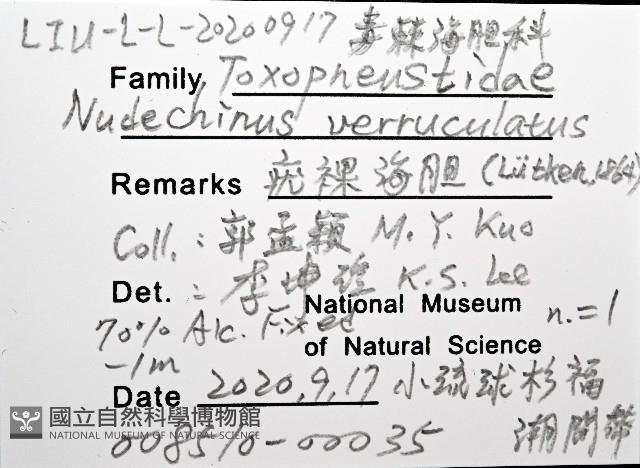 LIU-L-L-20200917 毒棘海胆科
Family Toxopneustidae
Nudechinus verruculatus
Remarks 疣裸海胆 (Lütken, 1864)
Coll. : 郭孟穎 M. Y. Kuo
Det. : 李坤瑄 K. S. Lee
70% Alc. Fixed National Museum n.=1
-1m of Natural Science
Date 2020.9.17 小琉球杉福
國立自然科學博物館 潮間帶
NATIONAL MUSEUM OF NATURAL SCIENCE
008510-00035